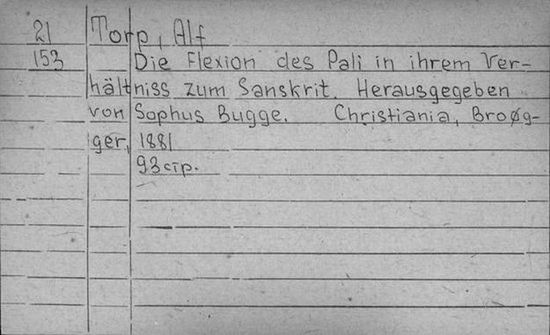 21 Torp, Alf
153 Die Flexion des Pali in ihrem Ver-
hältniss zum Sanskrit. Herausgegeben
von Sophus Bugge. Christiania, Broøg-
ger, 1881
93 стр.